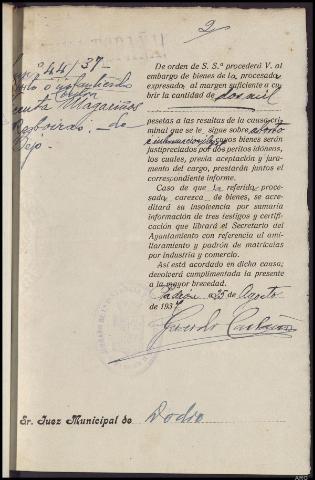 2
nº 44/37-
De orden de S. Sª procederá V. al
embargo de bienes de la procesada
expresada al margen suficiente a cu-
brir la cantidad de dos mil
pesetas a las resultas de la causa cri-
minal que se le sigue sobre aborto
e cuyos bienes serán
justipreciados por dos peritos idóneos,
los cuales, previa aceptación y jura-
mento del cargo, prestarán juntos el
correspondiente informe.
Caso de que la referida proce-
sada carezca de bienes, se acredi-
tará su insolvencia por sumaria
información de tres testigos y certifi-
cación que librará el Secretario del
Ayuntamiento con referencia al ami-
llaramiento y padrón de matrículas
por industria y comercio.
Así está acordado en dicha causa;
devolverá cumplimentada la presente
a la mayor brevedad.
Padrón a 25 de Agosto
de 1937
Gerardo
Sr. Juez Municipal de Dodro
infanticidio
Magariños
de